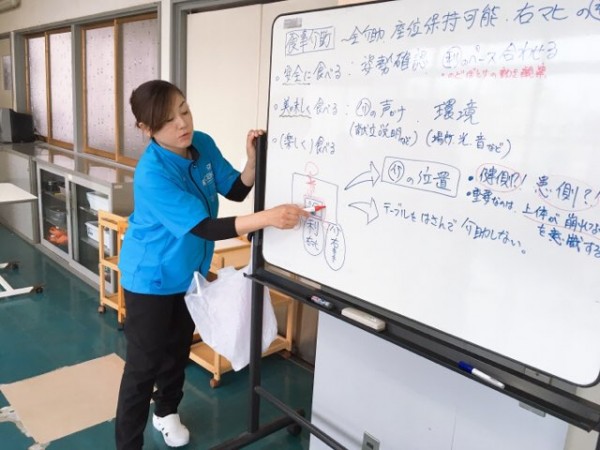 食事介助 ～全介助 座位保持可能、右マヒの
・安全に食べる：姿勢確認 利のペース合わせる
・のどぼとけの動き確認
・美味しく食べる：介の声かけ 環境
(献立説明など) (場所、光、音など)
・(楽しく)食べる
介の位置 ・健側?! 患側?!
・重要なのは、上体が崩れ
を意識する
テーブルをはさんで介助しない。
利